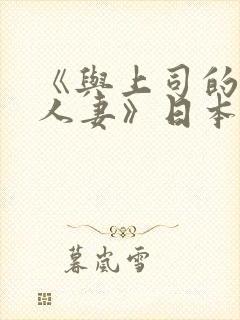 《與上司的
人妻》日本
暮嵐雪